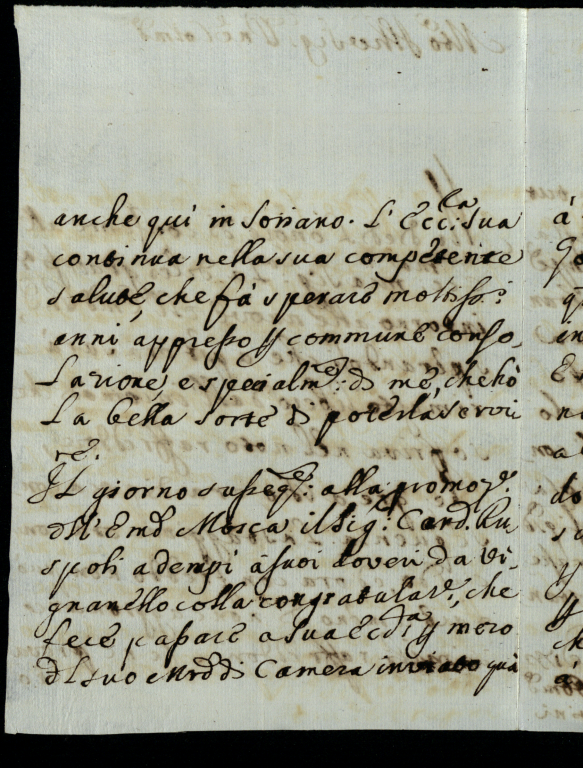 anche qui in Soriano. L'Ecc:za Sua
continua nella sua competente
salute, che fà sperare moltiss:i
anni appresso p commune conso,
lazione, e specialm:e di me, che hò
la bella sorte di poterla servi
re.
Il giorno susseg:e alla promoz:e
dell'Emo Mosca il Sig:r Card. Ru
spoli adempì à suoi doveri da Vi,
gnanello colla congratulaz:e, che
fece passare a Sua Ecc:za p mezo
del suo Mro di Camera inviato quà